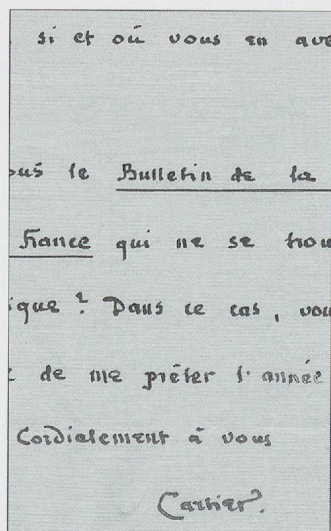 si et où vous en ave
ous le Bulletin de la
France qui ne se trou
ique ? Dans ce cas, vou
de me prêter l'année
Cordialement à vous
Cartier.